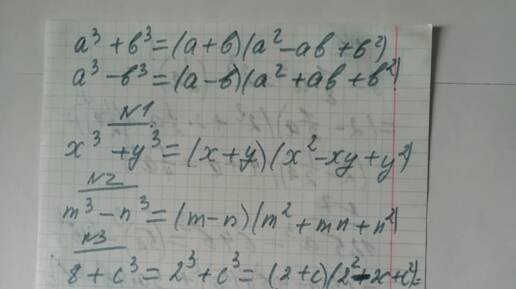 a³ + b³ = (a + b)(a² - ab + b²)
a³ - b³ = (a - b)(a² + ab + b²)
№1
x³ + y³ = (x + y)(x² - xy + y²)
№2
m³ - n³ = (m - n)(m² + mn + n²)
№3
8 + c³ = 2³ + c³ = (2 + c)(2² - 2c + c²) =